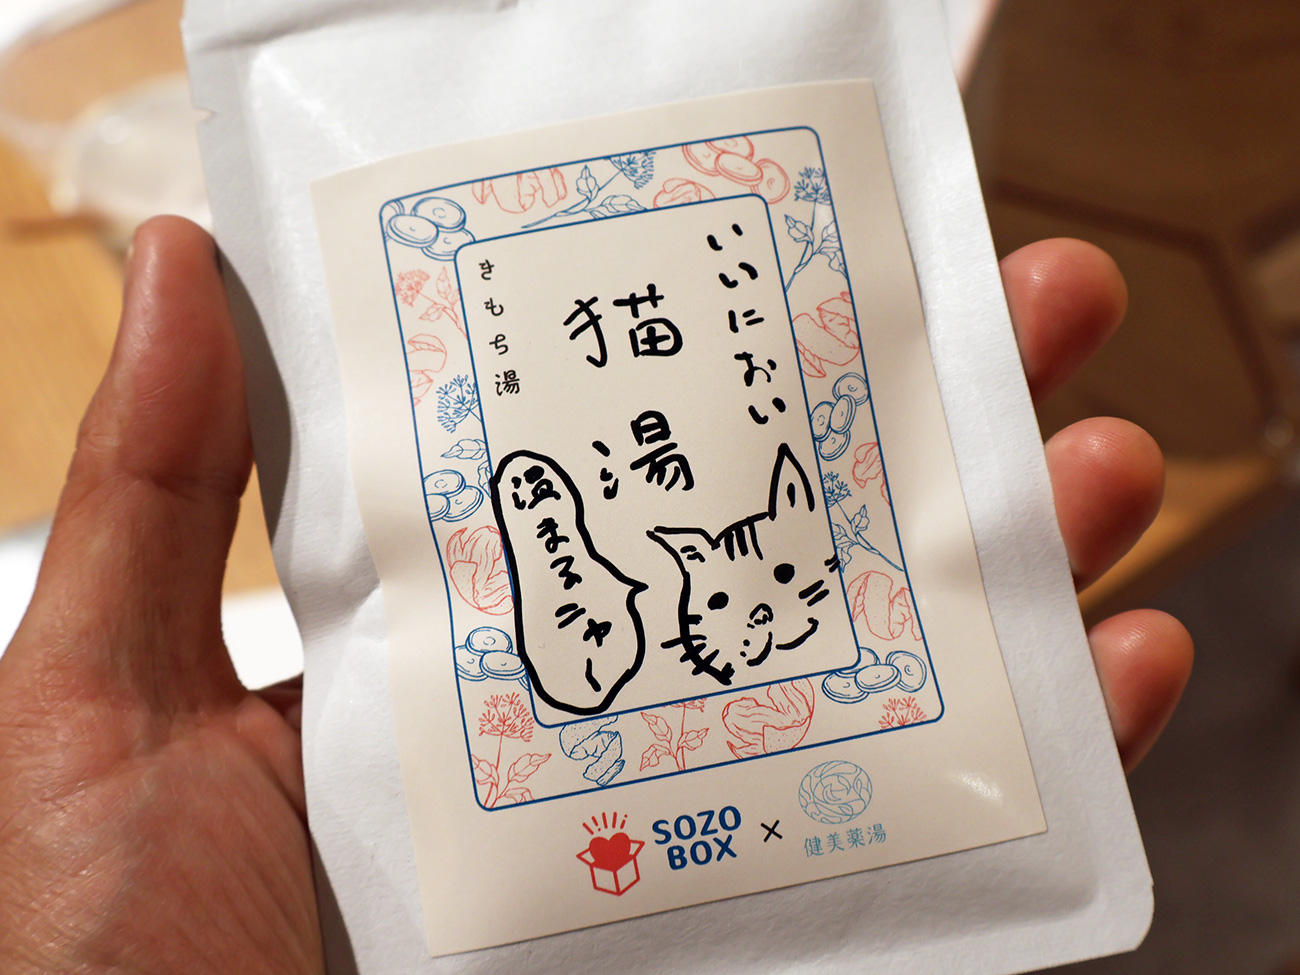 いいにおい
猫湯
きもち湯
温まるニャー
SOZO
BOX
×
健美薬湯